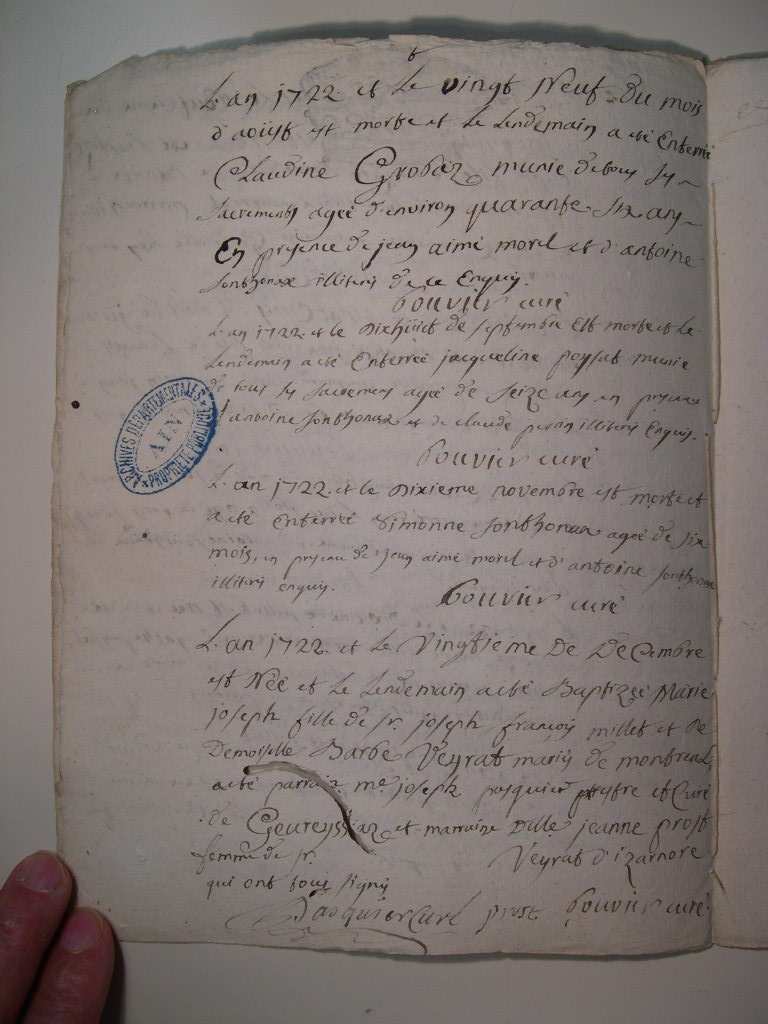 L'an 1722 et le vingt Neuf du mois
d'aoüst est morte et le lendemain a eté Enterreé
Claudine Grobaz munie de tous ses
sacrements ageé d'environ quarante six ans
En presence de jean aimé morel et d'antoine
sonthonax illiterés de ce Enquis.
bouvier curé
L'an 1722. et le dixhüict de septembre est morte et le
lendemain a eté Enterreé jacqueline poysat munie
de tous ses sacremens ageé de seize ans en presence
d'antoine sonthonax et de claude illiterés Enquis.
bouvier curé
L'an 1722. et le dixieme novembre est morte et
a eté Enterreé Simonne sonthonax ageé de six
mois, en presence de jean aimé morel et d'antoine sonthonax
illiterés enquis.
bouvier curé
L'an 1722. et le vingtieme de decembre
est Neé et le lendemain a eté Baptizeé Marie
joseph fille de sr. joseph françois millet et de
Demoiselle Barbe Veyrat mariés de montreal,
a eté parrain me. joseph pasquier prestre et Curé
de Geureyssiaz et marraine Dlle. jeanne prost
femme de sr. Veyrat d'izarnore
qui ont tous signés
Pasquier Curé prost bouvier curé.
ARCHIVES DÉPARTEMENTALES
AIN
PROPRIÉTÉ PUBLIQUE